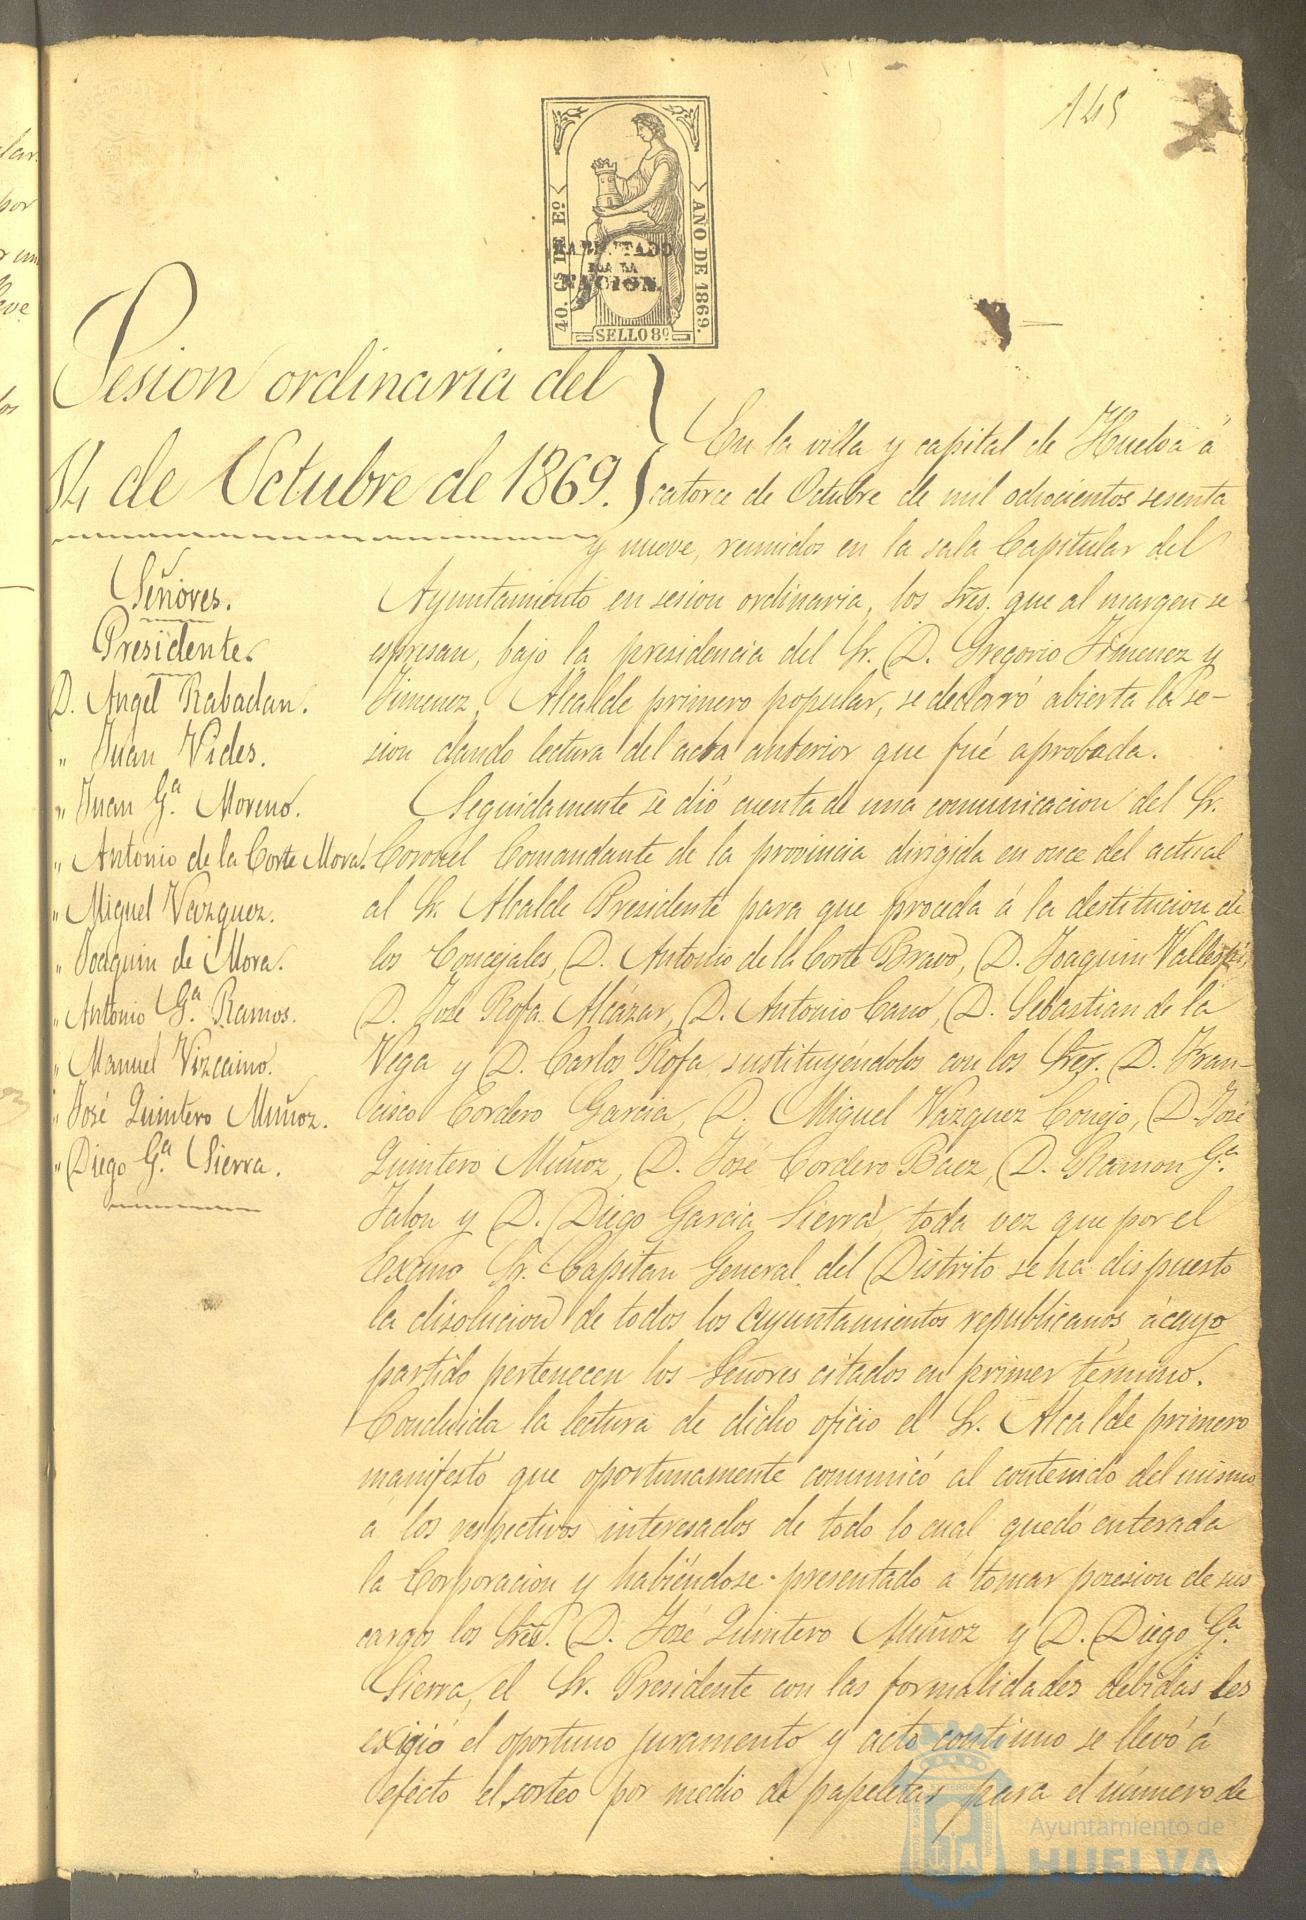 145
40. Cs DE Eº
AÑO DE 1869.
HABILITADO
POR LA
NACION.
SELLO 8º
Sesion ordinaria del
14 de Octubre de 1869.
Señores.
Presidente.
D. Angel Rabadan.
" Juan Vides.
" Juan Gª Moreno.
" Antonio de la Corte Mora.
" Miguel Vazquez.
" Joaquin de Mora.
" Antonio Gª Ramos.
" Manuel Vizcaino.
" José Quintero Muñoz.
" Diego Gª Sierra.
En la villa y capital de Huelva á
catorce de Octubre de mil ochocientos sesenta
y nueve, reunidos en la sala Capitular del
Ayuntamiento en sesion ordinaria, los Sres. que al margen se
espresan, bajo la presidencia del Sr. D. Gregorio Jimenez y
Jimenez, Alcalde primero popular, se declaró abierta la se-
sion dando lectura del acta anterior que fué aprobada.
Seguidamente se dió cuenta de una comunicacion del Sr.
Coronel Comandante de la provincia dirigida en once del actual
al Sr. Alcalde Presidente para que proceda á la destitucion de
los Concejales, D. Antonio de la Corte Bravo, D. Joaquin
D. José Rofa Alcázar, D. Antonio Cano, D. Sebastian de la
Vega y D. Carlos Rofa, sustituyéndolos con los Sres. D. Fran-
cisco Cordero Garcia, D. Miguel Vazquez Conejo, D. José
Quintero Muñoz, D. José Cordero Baez, D. Ramon Gª
Jalon y D. Diego Garcia Sierra, toda vez que por el
Excmo Sr. Capitan General del Distrito se ha dispuesto
la disolucion de todos los Ayuntamientos republicanos, á cuyo
partido pertenecen los Señores citados en primer término.
Concluida la lectura de dicho oficio el Sr. Alcalde primero
manifestó que oportunamente comunicó al contenido del mismo
á los respectivos interesados de todo lo cual quedó enterada
la Corporacion y habiéndose presentado á tomar posesion de sus
cargos los Sres. D. José Quintero Muñoz y D. Diego Gª
Sierra, el Sr. Presidente con las formalidades debidas les
exigió el oportuno juramento y acto continuo se llevó á
efecto el sorteo por medio de papeletas para el número de
Ayuntamiento de
HUELVA